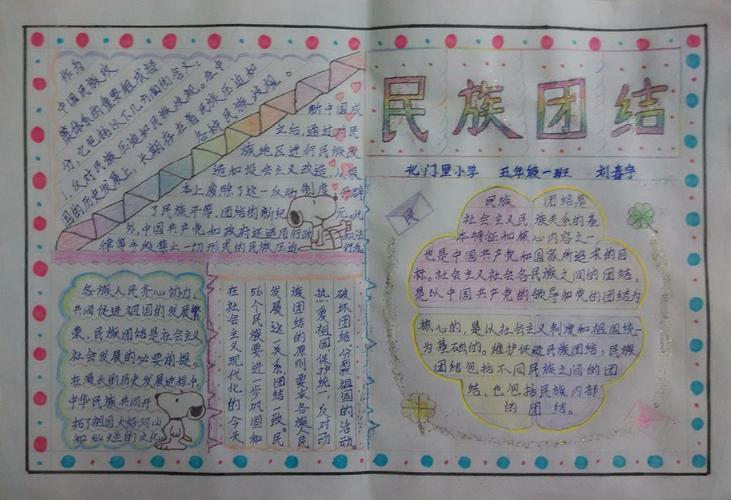 民族团结
北门里小学 五年级一班 刘喜宁
作为
中国民族政
策体系的重要组成部
分,它包括以下几方面的含义:
反对民族压迫和民族歧视。在中
国的历史发展上,长期存在着民族压迫和
民族歧视。
新中国成
立后,通过对民
族地区进行民族改
造和社会主义改造,从根
本上废除了这一反动制度,开辟
了民族平等、团结的新纪元。此
外,中国共产党和政府还运用行政和法
律等手段禁止一切形式的民族压迫
民族团结是
社会主义民族关系的基
本特征和核心内容之一,
也是中国共产党和国家所追求的目
标。社会主义社会各民族之间的团结,
是以中国共产党的领导和党的团结为
核心的,是以社会主义制度和祖国统一
为基础的。维护促进民族团结,民族
团结包括不同民族之间的团
结,也包括民族内部
的团结。
各族人民齐心协力,
共同促进祖国的发展繁
荣,民族团结是社会主义
社会发展的必要前提。
在漫长的历史发展进程中,
中华民族共同开
拓了祖国大好河山
和灿烂的文化
破坏团结、分裂祖国的活动。
热爱祖国保护统一,反对动
族团结的原则要求各族人民
发展这一关系团结一致。民
56个民族要进一步巩固和
在社会主义现代化的今天